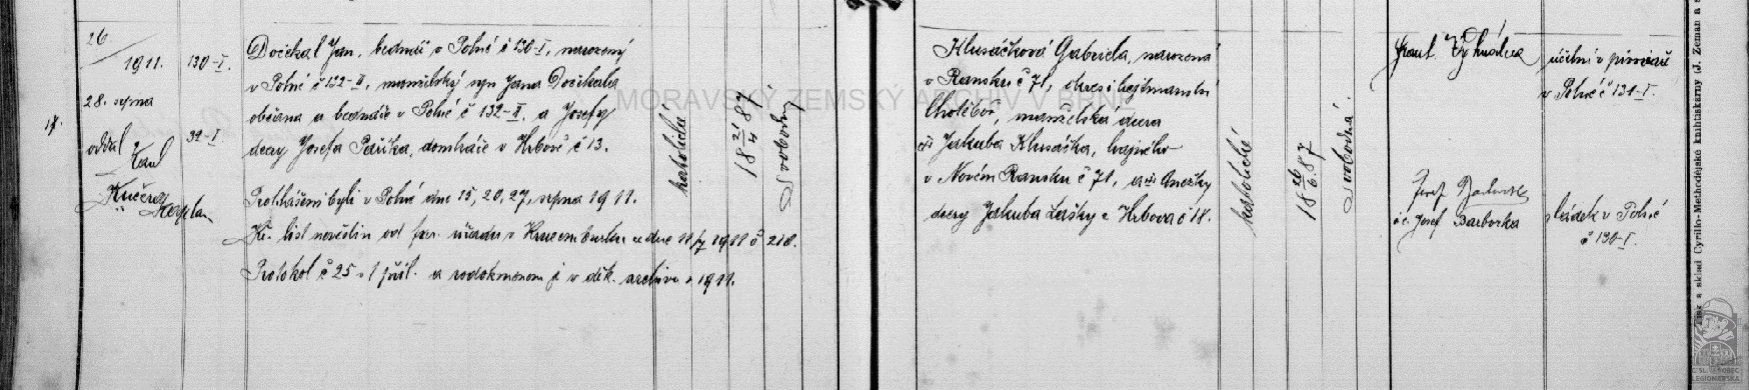 17.
26
1911.
28. srpna
oddal
Karel
Kučera
Kaplan
130-I.
32-I
Dočekal Jan, bednář v Polné č 130-I, narozený
v Polné č 132-II, manželský syn Jana Dočekala
občana a bednáře v Polné č 132-II. a Josefy
dcery Josefa Paříka, domkáře v Hrbově č 13.
Prohlášeni byli v Polné dne 15, 20, 27, srpna 1911.
Kř. list nevěstin od far. úřadu v Krucemburku ze dne 11/7 1911 č 218.
Protokol č 25 s 1 příl. a rodokmenem je v děk. archivu z 1911.
katolické
18 21/4 87
Svobodný
Klusáčková Gabriela, narozená
v Ransku č 71, okres. hejtmanství
Chotěboř, manželská dcera
Jakuba Klusáčka, hajného
v Novém Ransku č 71, a Anežky
dcery Jakuba Lašky z Hrbova č 18.
katolické
18 26/6. 87
Svobodná.
Karel
účetní v pivovaře
v Polné č 131-I.
Josef
Josef Barborka
sládek v Polné
č 130-I.
MORAVSKÝ ZEMSKÝ ARCHIV V BRNĚ
Tisk a sklad Cyrillo-Methodějské knihtiskárny (J. Zeman a s
ČSL. OBEC
LEGIONÁŘSKÁ